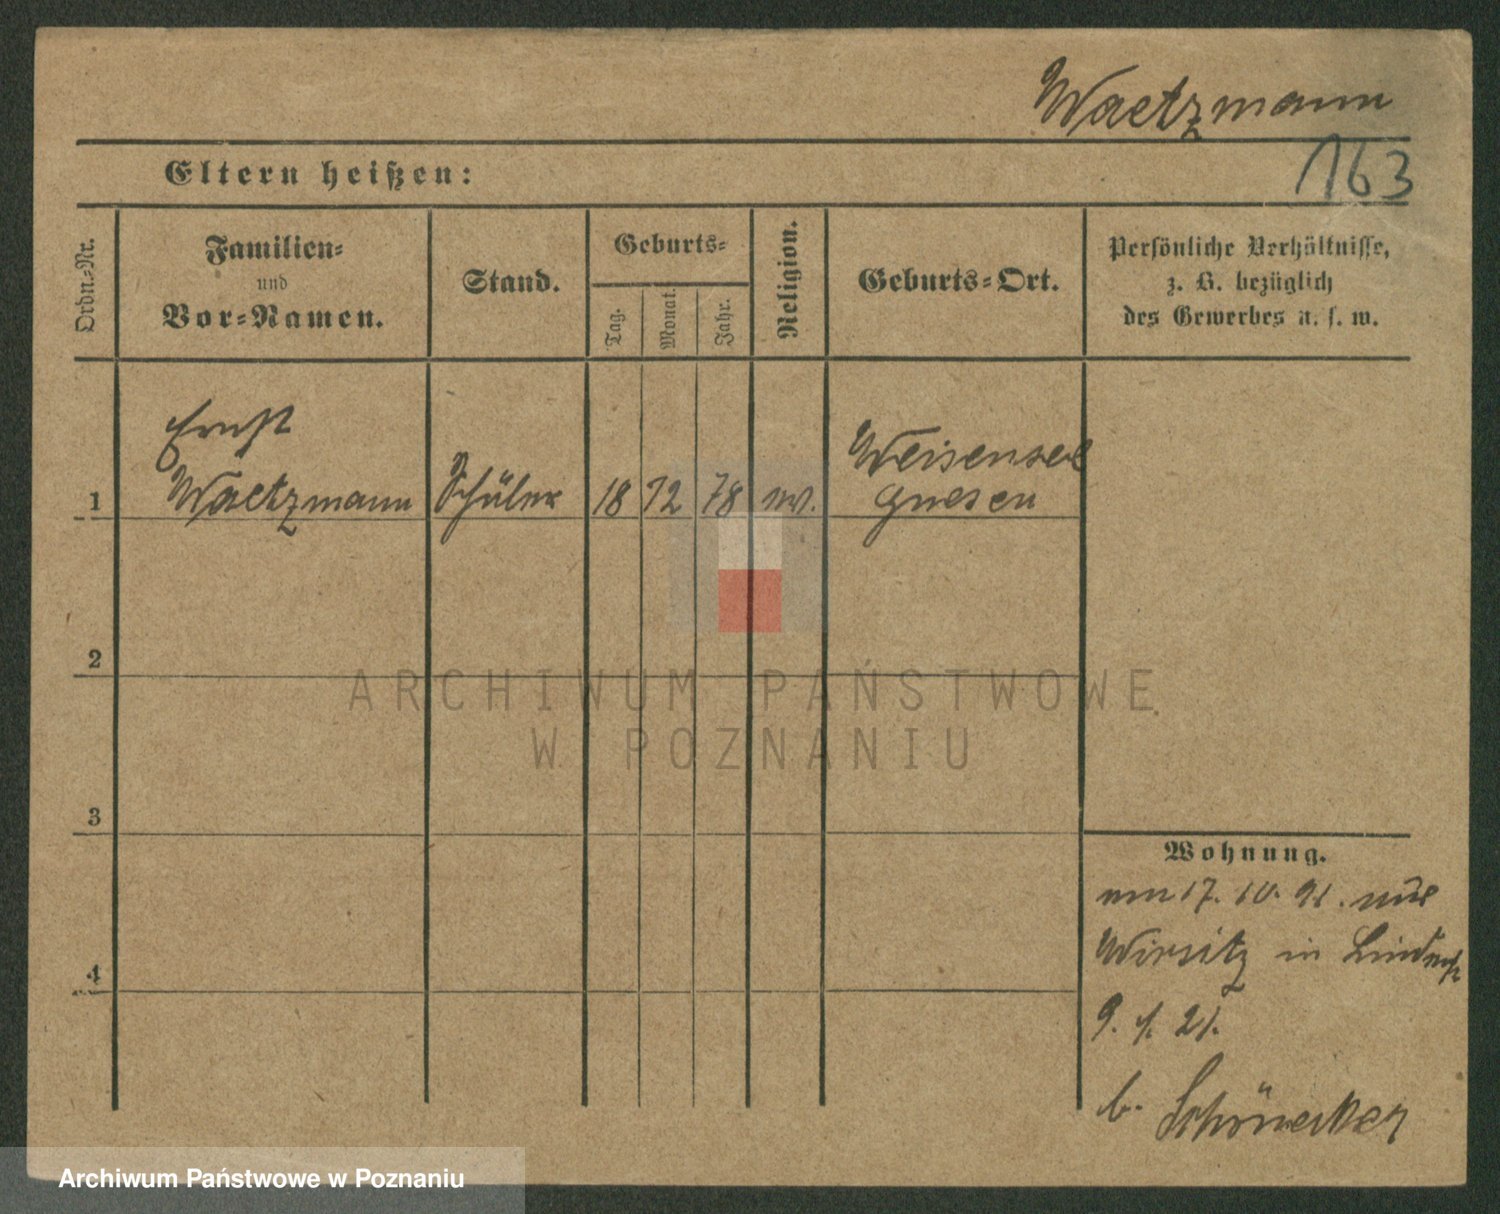 Waetzmann
Eltern heißen:
163
Ordn.-Nr.
Familien-
und
Vor-Namen.
Stand.
Geburts-
Tag.
Monat.
Jahr.
Religion.
Geburts-Ort.
Persönliche Verhältnisse,
z. B. bezüglich
des Gewerbes u. s. w.
Ernst
1 Waetzmann Schüler 18 12 78 ev. Weisensee
Gnesen
2
3
4
Wohnung.
am 17. 10. 91. aus
Wirsitz in Lindenstr
9. 21.
b. Schönecker
ARCHIWUM PAŃSTWOWE
W POZNANIU
Archiwum Państwowe w Poznaniu